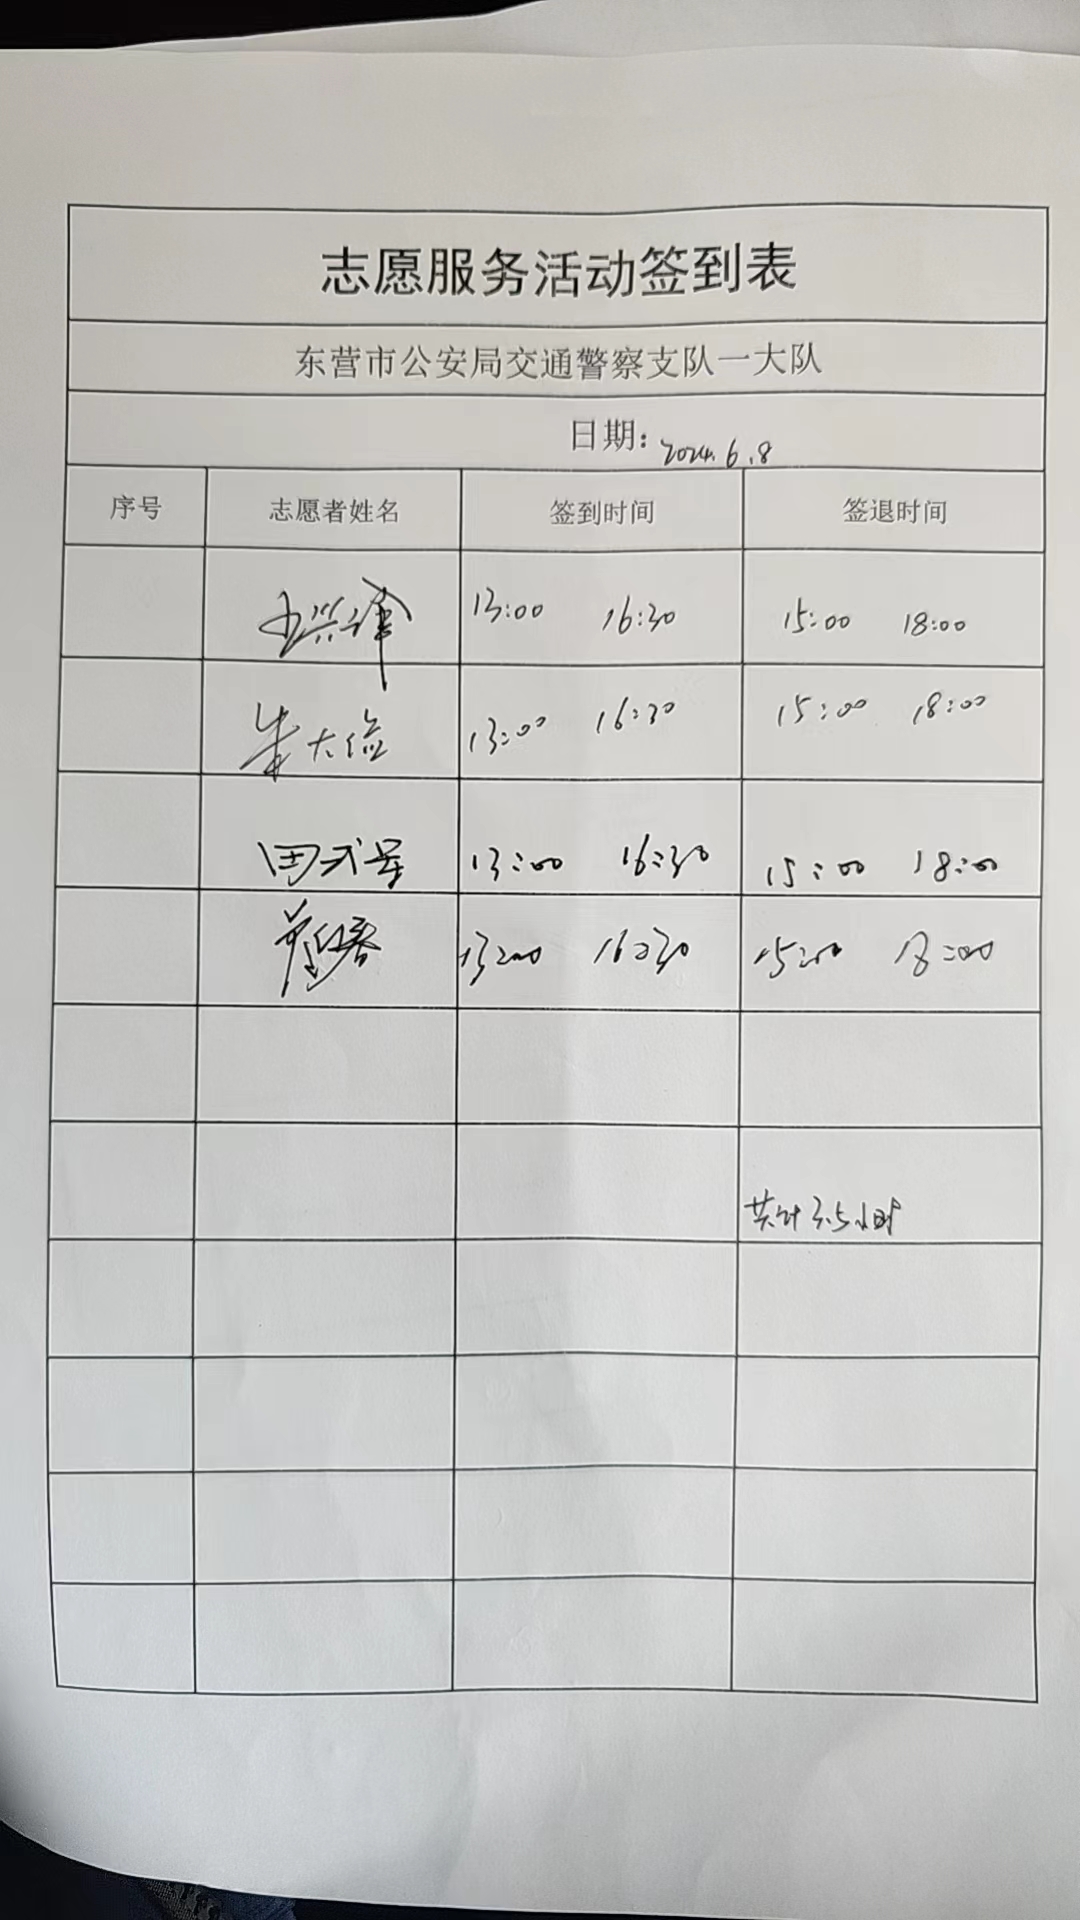 志愿服务活动签到表
东营市公安局交通警察支队一大队
日期：2024.6.8
序号 志愿者姓名 签到时间 签退时间
13:00 16:30 15:00 18:00
朱大俭 13:00 16:30 15:00 18:00
田 13:00 16:30 15:00 18:00
13:00 16:30 15:00 18:00
共计3.5小时